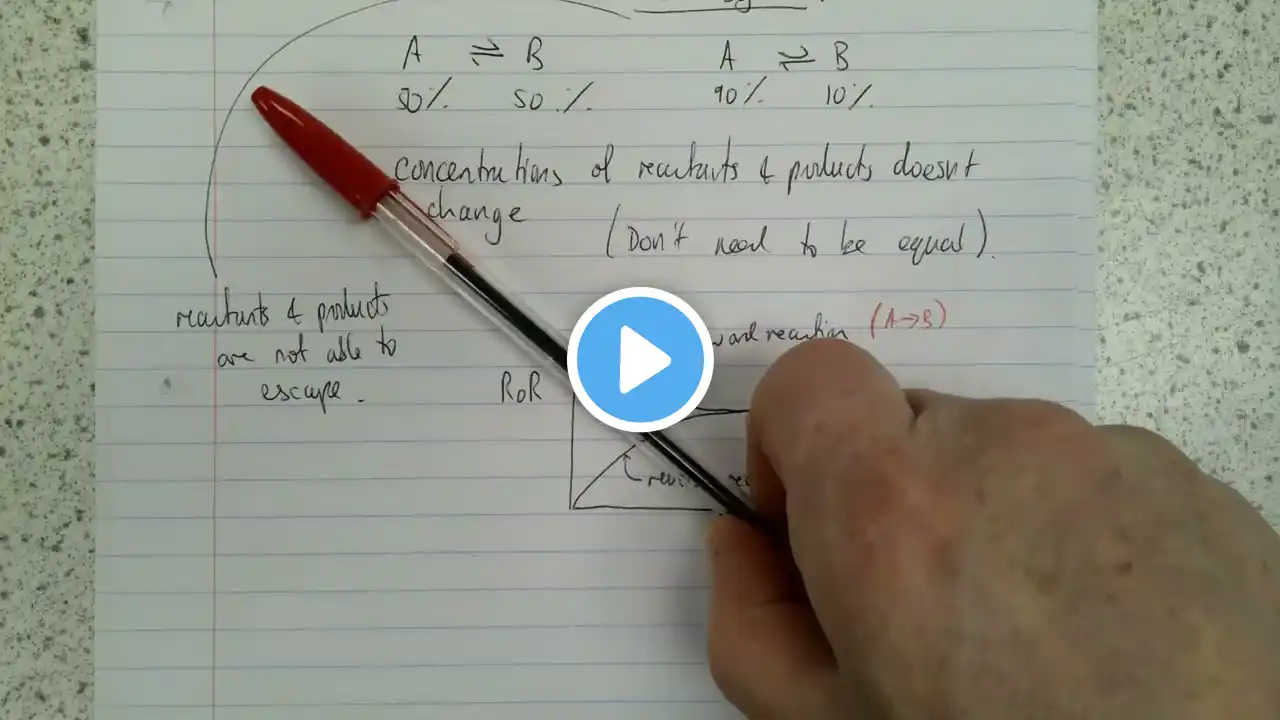 A ⇌ B A ⇌ B
50% 50% 90% 10%
concentrations of reactants & products doesn't
change (Don't need to be equal).
reactants & products
are not able to
escape.
reaction (A→B)
RoR